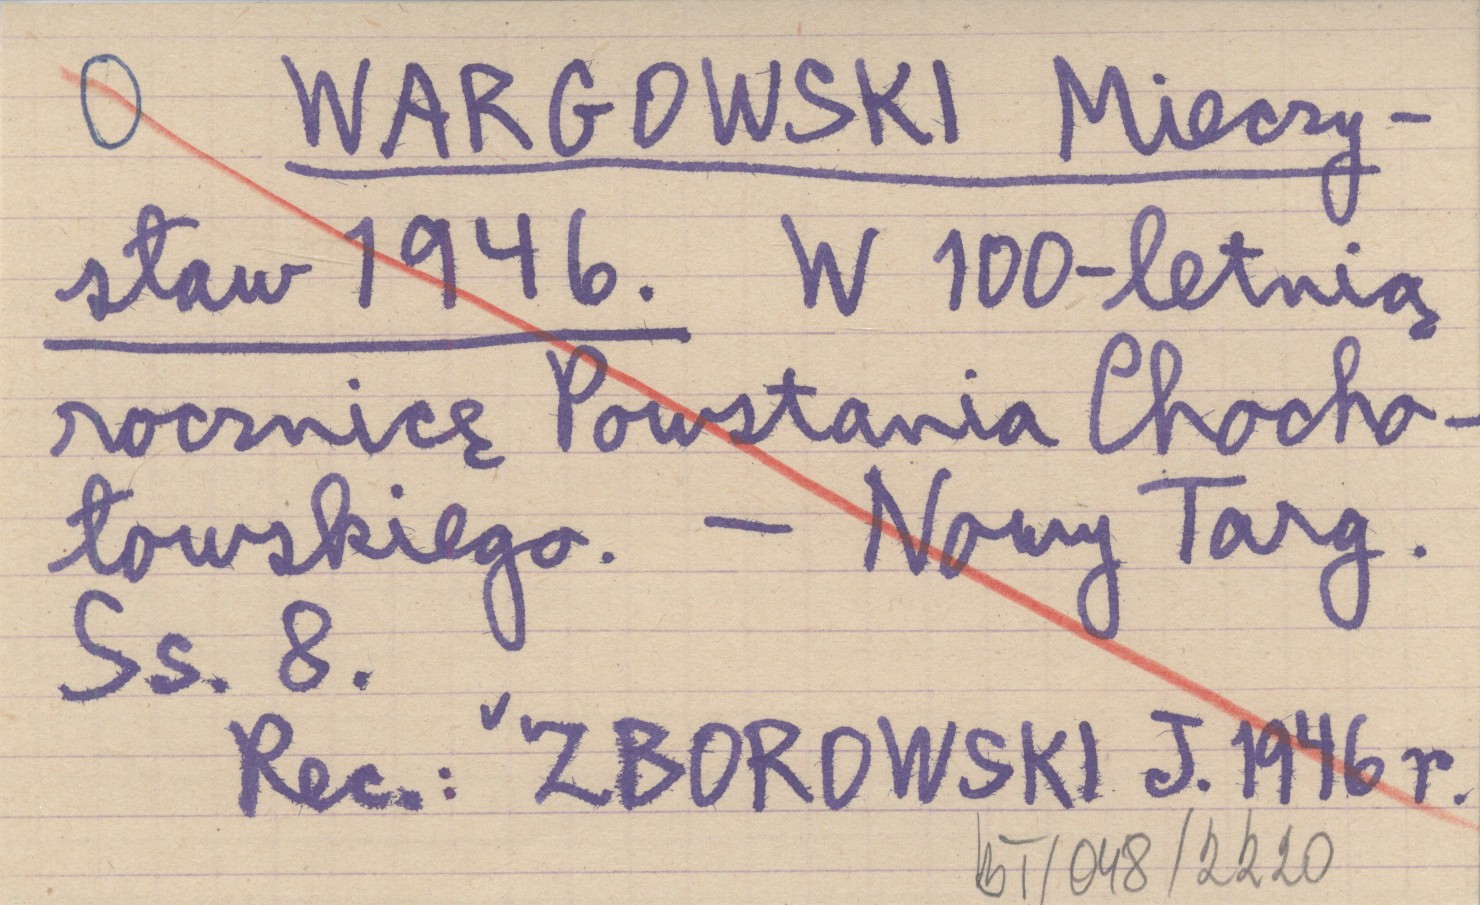 O WARGOWSKI Mieczy-
sław 1946. W 100-letnią
rocznicę Powstania Chocho-
łowskiego. — Nowy Targ.
Ss. 8.
Rec.: ZBOROWSKI J. 1946 r.
BT/048/2220